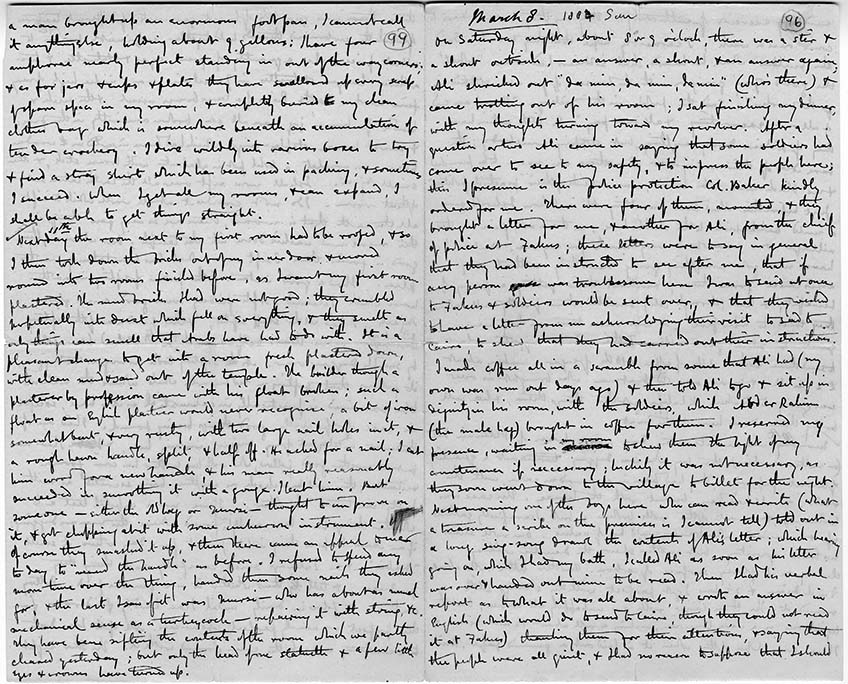 a man brought up an enormous foot pan, I cannot call
it anything else, holding about 9 gallons; I have four
99
amphorae nearly perfect standing in out of the way corners;
& as for jars & cups & plates they have swallowed up every scrap
of open space in my room & completely buried my clean
clothes bag which is somewhere beneath an accumulation of
tender crockery. I dive wildly into various boxes to try
& find a stray shirt which has been used in packing, & sometimes
I succeed. When I get all my rooms, & can expand, I
shall be able to get things straight.
Next day the room next to my first room had to be roofed, & so
I then took down the bricks out of my window & moved
into two rooms finished before, as I want my first room
plastered. The mud bricks I had were not good; they crumbled
perpetually into dust which fell on everything, & they smelt as
only things can smell that Arabs have had to do with. It is a
pleasant change to get into a room fresh plastered down,
with clean mud & sand out of the temple. The builder though a
plasterer by profession came with his float broken; such a
float as an English plasterer would never recognise, a bit of iron
somewhat bent, & very rusty, with two large nail holes in it, &
a rough hewn handle, split, & half off. He asked for a nail; I cut
him wood for a new handle, & his man really reasonably
succeeded in smoothing it with a gouge. I lent him. But
someone - either the or - thought to improve on
it, & got chopping at it with some unknown instrument.
Of course they smashed it up, & then there came an appeal
to day to "mend the handle" as before. I refused to spend any
more time over the thing, handed them some nails they asked
for, & the last I saw of it was - who has about as much
mechanical sense as a turkeycock - repairing it with string, &c.
They have been sifting the contents of the room which we partly
cleared yesterday; but only the head of one statuette & a few little
eyes & crowns have turned up.
March 8. 1884 Sun
96
On Saturday night, about 8 or 9 o'clock, there was a stir &
a shout outside, - an answer, a shout, & an answer again;
Ali shrieked out "da min, da min, da min" (who's there) &
came trotting out of his room; I sat finishing my dinner,
with my thoughts turning toward my revolver. After a
question or two Ali came in saying that some soldiers had
come over to see to my safety, & to impress the people here;
this I presume is the police protection Col. Baker kindly
ordered for me. There were four of them, mounted & they
brought a letter for me, & another for Ali, from the chief
of police at Fakus; these letters were to say in general
that they had been instructed to see after me, that if
any person was troublesome here I was to send at once
to Fakus & soldiers would be sent over, & that they wished
to have a letter from me acknowledging their visit to send to
Cairo to shew that they had carried out their instructions.
I made coffee all in a scramble from some that Ali had (my
own was run out days ago) & then told Ali to go & sit up in
dignity in his room, with the soldiers, while Abd er Rahim
(the male help) brought in coffee for them. I reserved my
presence, waiting in to shew them the light of my
countenance if neccessary; luckily it was not necessary, as
they soon went down to the village to billet for the night.
Next morning one of the boys here who can read & write (what
a treasure a scribe on the premises is I cannot tell) told out in
a long sing-song drawl the contents of Ali's letter; which being
going on while I had my bath, I called Ali as soon as his letter
was over & handed out mine to be read. Then I had his verbal
report as to what it was all about & wrote an answer in
English (which would do to send to Cairo, though they could not read
it at Fakus) thanking them for their attentions, & saying that
the people were all quiet, & I had no reason to suppose that I should